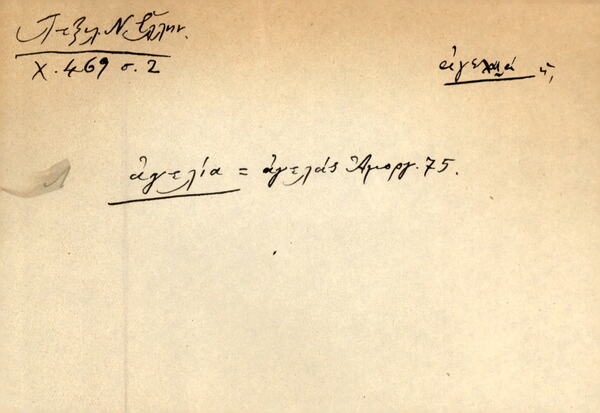 Λεξικ. Ν. Ἑλλην.
Χ. 469 σ. 2
ἀγελιά ἡ,
ἀγελία = ἀγελάς Ἀμοργ. 75.